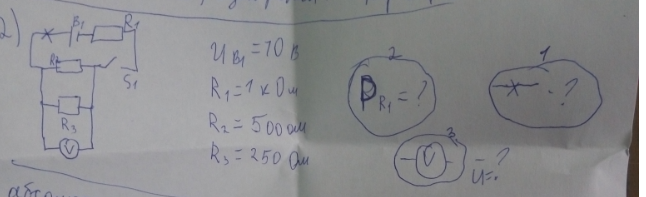 2)
B1
R1
R2
S1
R3
V
U B1 = 10 В
R1 = 1 кОм
R2 = 500 ом
R3 = 250 Ом
2
PR1 = ?
1
- ?
3
V
U = ?